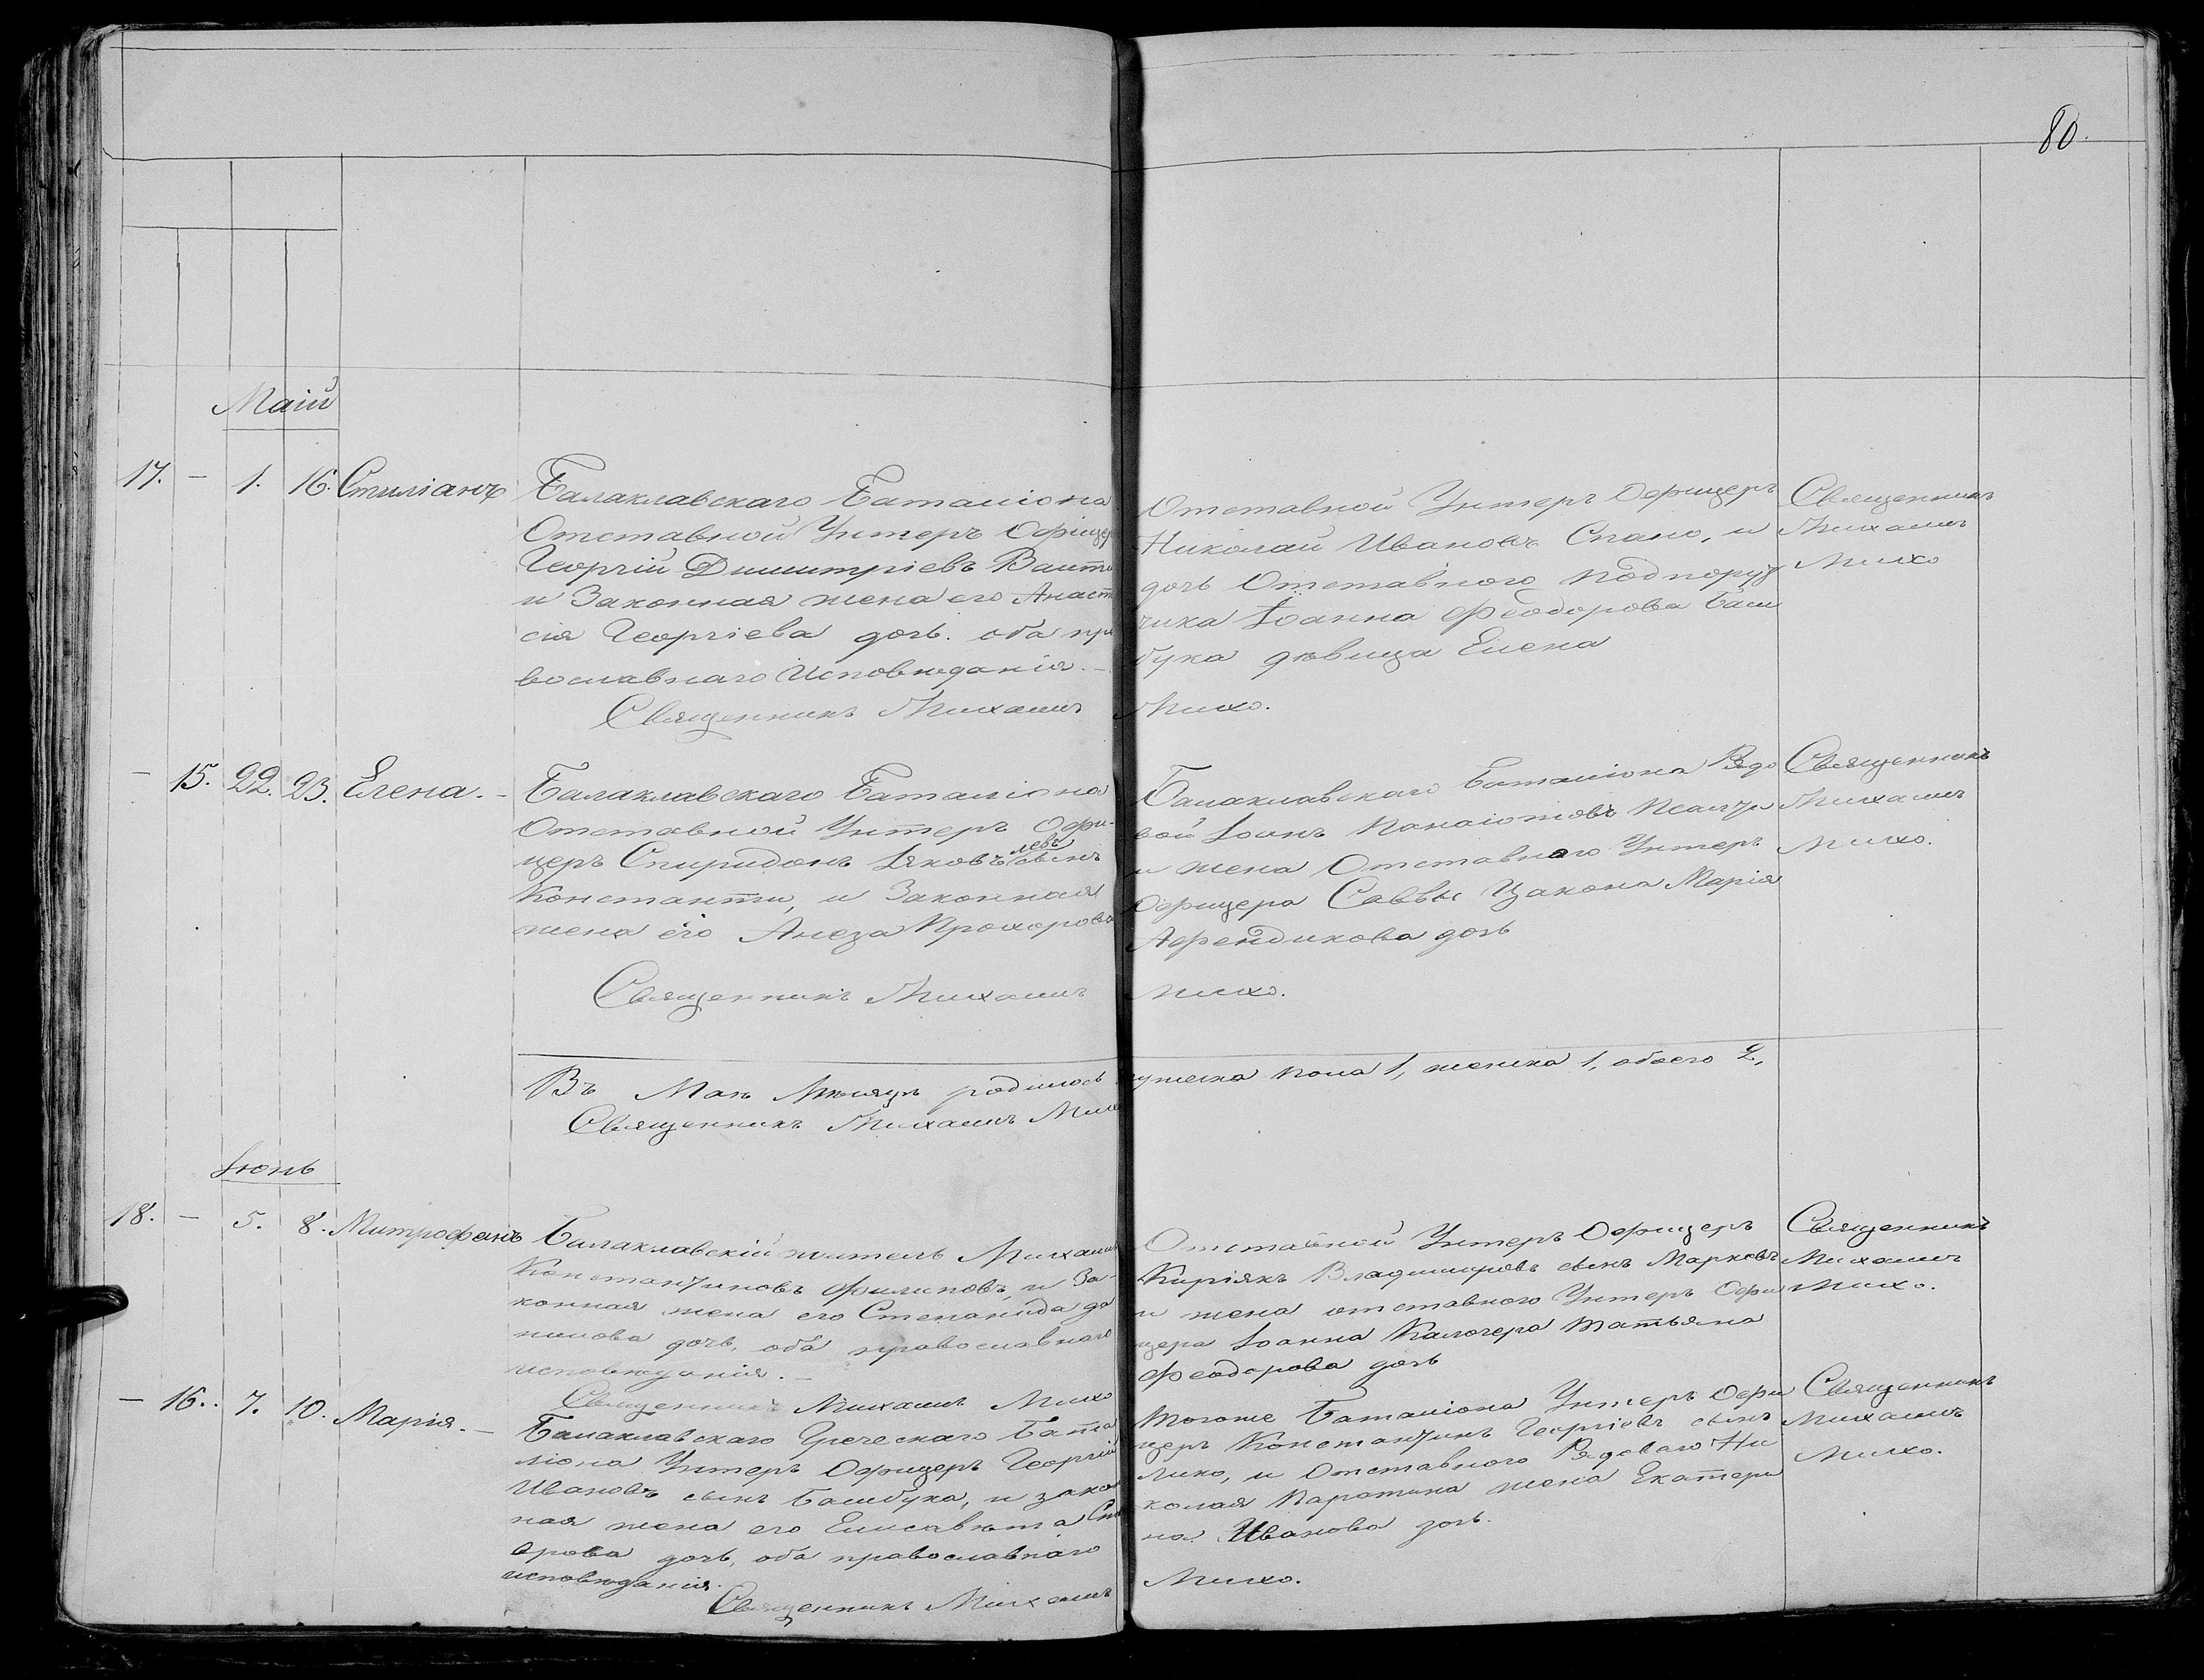 80.
Маій
17. — 1. 16. Стиліанъ
Балаклавскаго Баталіона
Отставной Унтеръ Офицер
Георгій Димитріевъ
и Законная жена его Анаста
сія Георгіева дочь. оба пра
вославнаго Исповѣданія. —
Священникъ Михаилъ Михо.
Отставной Унтеръ Офицеръ
Николай Ивановъ Спано, и
дочь Отставного подпору
чика Іоанна Феодорова Баш
бука дѣвица Елена
Священникъ
Михаилъ
Михо
— 15. 22. 23. Елена. —
Балаклавскаго Баталіона
Отставной Унтеръ Офи-
церъ Спиридонъ Іаковлевъ сынъ
Константи, и Законная
жена его Анеза Прохорова
Священникъ Михаилъ Михо.
Балаклавскаго Баталіона Рядо
вой Іоанъ Панаіотовъ
и жена Отставнаго Унтеръ
Офицера Саввы Цакона Марія
Афендикова дочь
Священникъ
Михаилъ
Михо.
Въ Маѣ Мѣсяцѣ родилось мужеска пола 1, женска 1, обоего 2,
Священникъ Михаилъ Михо
Іюнь
18. — 5. 8. Митрофанъ
Балаклавскій житель Михаилъ
Константиновъ Филиповъ, и За-
конная жена его Степанида да
нилова дочь, оба православнаго
исповѣданія. —
Священникъ Михаилъ Михо
Отставной Унтеръ Офицеръ
Киріякъ Владимировъ сынъ Марковъ
и жена отставного Унтеръ Офи
цера Іоанна Калогера Татьяна
Феодорова дочь
Священникъ
Михаилъ
Михо.
— 16. 7. 10. Марія. —
Балаклавскаго Греческаго Бата
ліона Унтеръ Офицеръ Георгій
Ивановъ сынъ Башбука, и закон
ная жена его Елисавѣта
дочь, оба православнаго
исповѣданія.
Священникъ Михаилъ Михо.
Тогоже Баталіона Унтеръ Офи
церъ Константинъ Георгіевъ сынъ
Лико, и Отставного Рядоваго Ни
колая Каратина жена Екатери
на Иванова дочь.
Священникъ
Михаилъ
Михо.